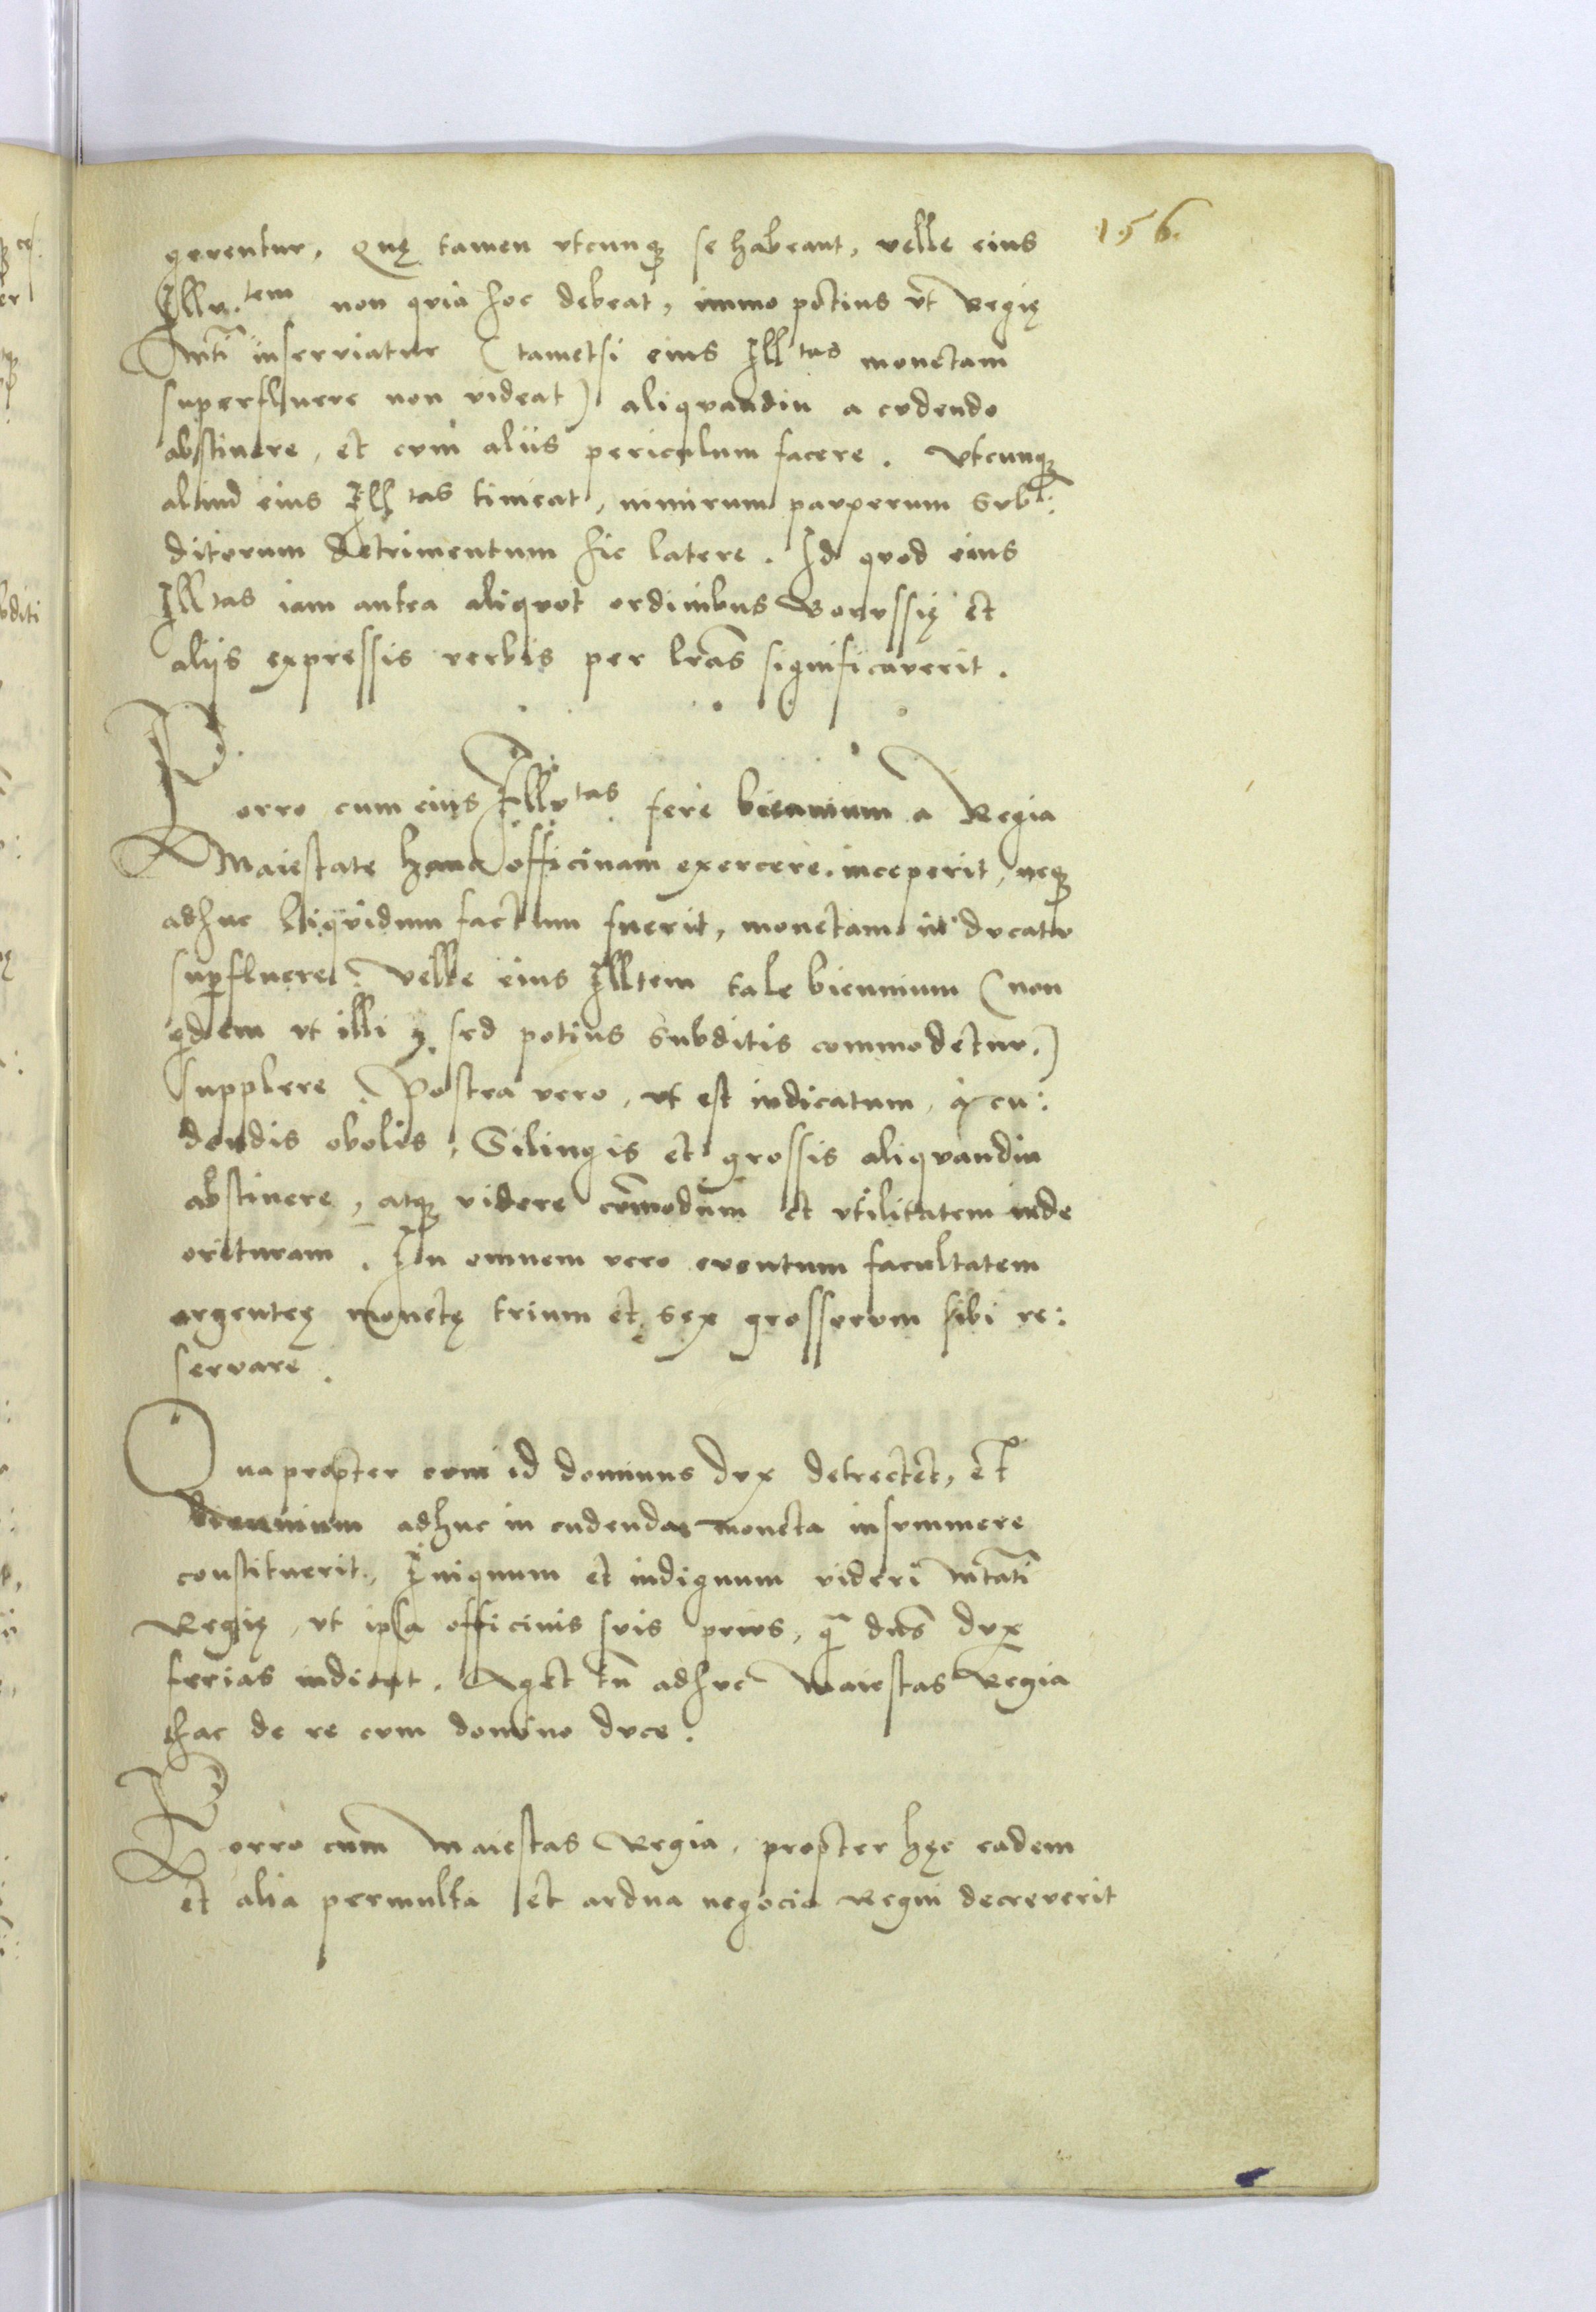 156.
gerentur, Quę tamen vtcunque se habeant, velle eius
Illu.tem non qvia hoc debeat, immo potius vt Regię
Mti inserviatur (tametsi eius Ill tas monetam
superfluere non videat) aliqvandiu a cvdendo
abstinere, et cvm aliis periculum facere. Vtcunque
aliud eius Ill tas timeat, nimirum pavperum svb:
ditorum detrimentum hic latere. Id qvod eius
Ill tas iam antea aliqvot ordinibus Borvssię et
aliis expressis verbis per lras significaverit.
Porro cum eius Illv tas fere biennium a Regia
Maiestate hanc officinam exercere inceperit, neque
adhuc liqvidum factum fuerit, monetam in dvcatu
superfluere. Velle eius Illtem tale biennium (non
qdem vt illi, sed potius subditis commodetur.)
supplere. Postea vero, vt est indicatum, a cu:
dendis obolis, Silingis et grossis aliqvandiu
abstinere, atque videre comodum et vtilitatem inde
orituram. In omnem vero eventum facultatem
argenteę monetę trium et sex grossorvm sibi re:
servare.
Quapropter cvm id dominus dvx detrectet, et
biennium adhuc in cudenda moneta insvmmere
constituerit, Iniquum et indignum videri Mtati
Regię, vt ipsa officinis svis privs, q dns dvx
ferias indicat. Aget tn adhvc Maiestas Regia
hac de re cvm domino dvce.
Porro cum Maiestas Regia, propter hęc eadem
et alia permulta et ardua negocia Regni decreverit